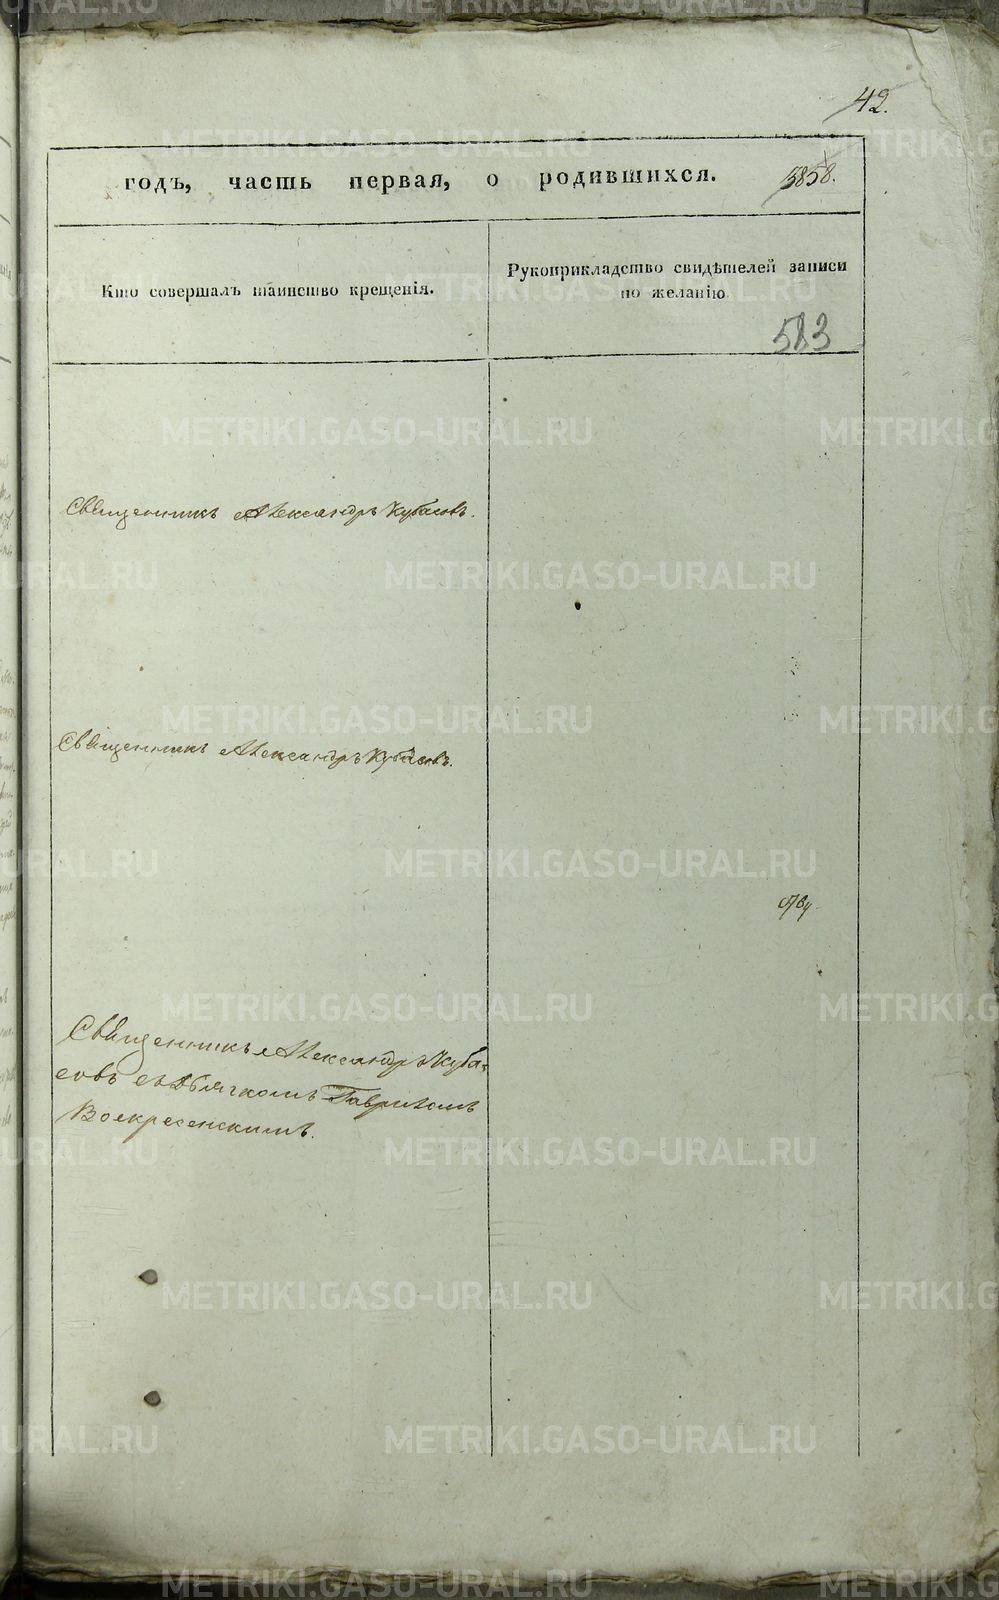 42.
годъ, часть первая, о родившихся.
5858.
Кто совершалъ таинство крещенія.
Рукоприкладство свидѣтелей записи
по желанію.
583
Священникъ Александръ Кубасовъ.
Священникъ Александръ Кубасовъ.
Священникъ Александръ Куба-
совъ съ дьячкомъ Гавриломъ
Воскресенскимъ.
METRIKI.GASO-URAL.RU